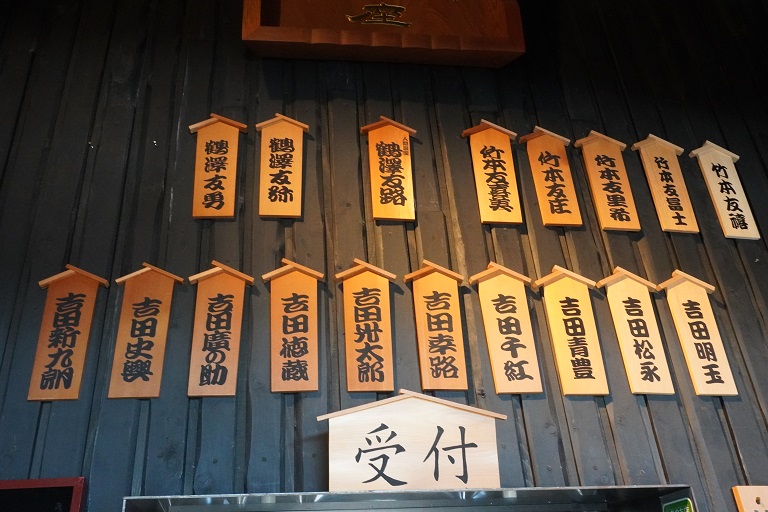 座
鶴澤友勇
鶴澤友弥
鶴澤友路
竹本友喜美
竹本友庄
竹本友里希
竹本友冨士
竹本友禧
吉田新九朗
吉田史興
吉田廣の助
吉田徳蔵
吉田卅太郎
吉田幸路
吉田千紅
吉田青豊
吉田松永
吉田明玉
受付